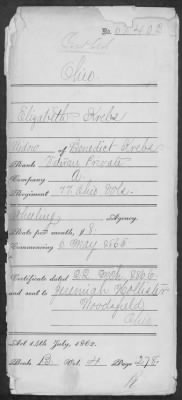 No.
Ohio.
Elizabeth Krebs
Widow of Benedict Krebs
Rank Private
Company A.
Regiment 77 Ohio Vols.
Wheeling Agency.
Rate per month, $8.
Commencing 6 May 1865
Certificate dated 22 1866
and sent to Jeremiah Hollister
Woodsfield
Ohio.
Act 14th July, 1862.
Book B Vol. 4 Page 278